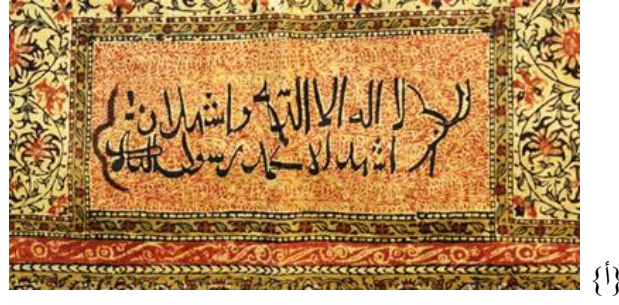 لا اله الا الله واشهد ان
اشهد ان محمد رسول الله
{أ}